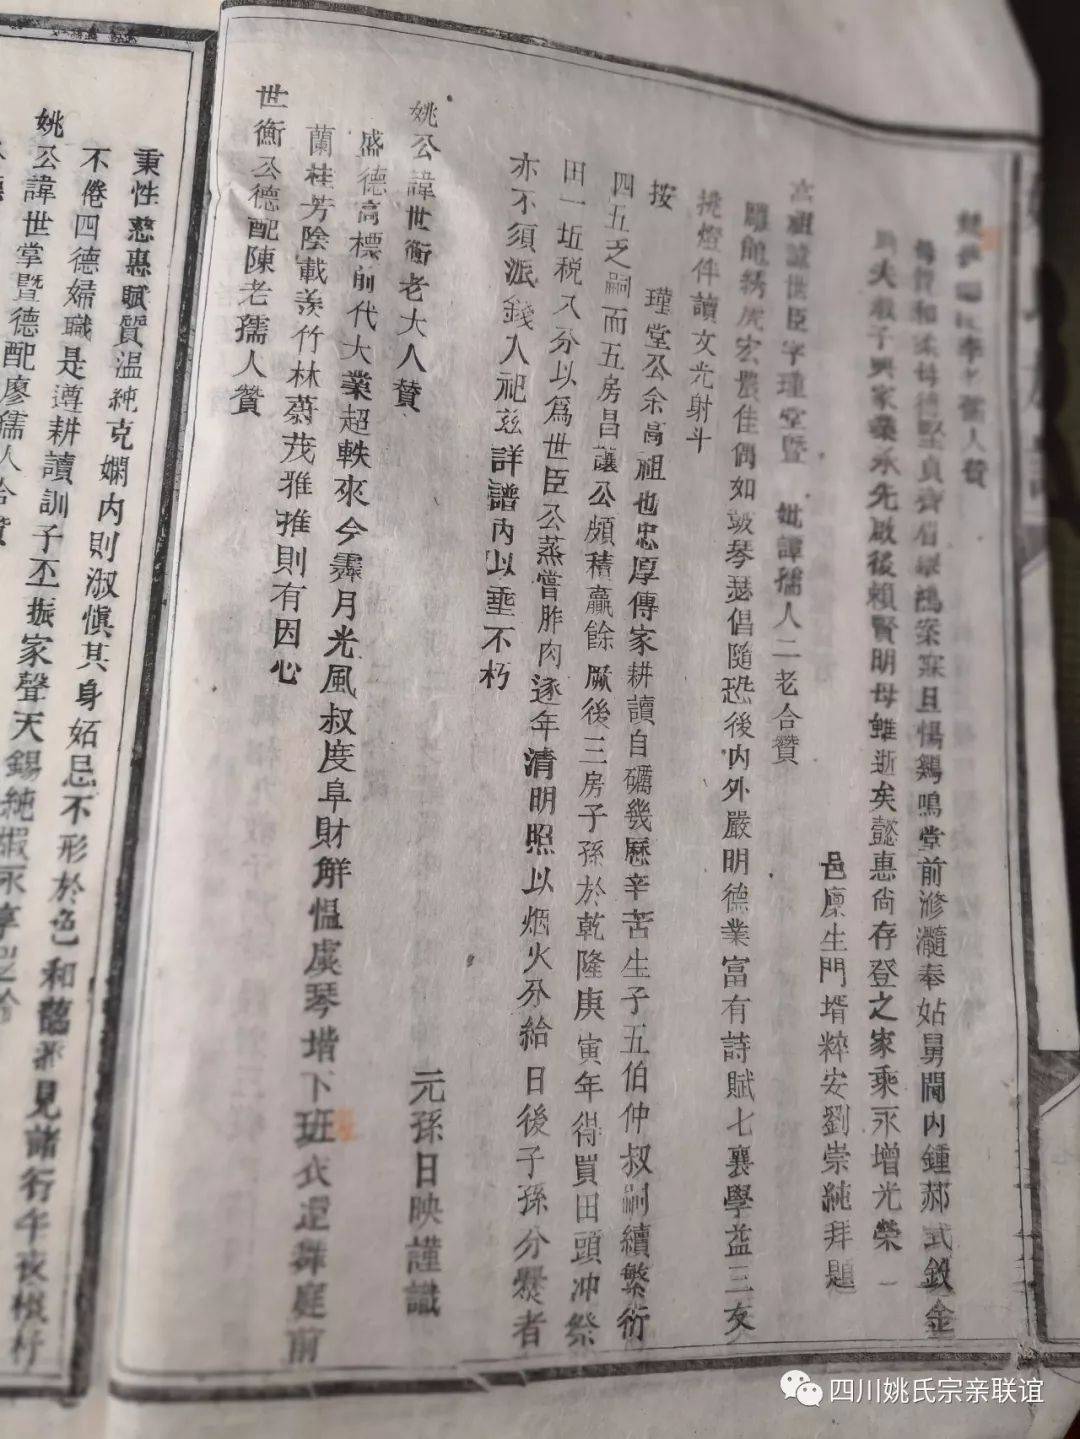 孺人贊
母質和柔母德堅貞齊眉舉鴻案寐且惕鷄鳴堂前滫瀡奉姑舅閫内鍾郝式釵金
夫敎子興家業承先啟後賴賢明母雖逝矣懿惠尙存登之家乘永增光榮
邑廩生門壻粹安劉崇純拜題
高祖諱世臣字瑾堂暨 妣譚孺人二老合贊
雕龍綉虎宏農佳偶如皷琴瑟倡隨恐後内外嚴明德業富有詩賦七襄學益三友
挑燈伴讀文光射斗
按 瑾堂公余高祖也忠厚傳家耕讀自礪幾歷辛苦生子五伯仲叔嗣續繁衍
四五乏嗣而五房昌讓公頗積贏餘厥後三房子孫於乾隆庚寅年得買田頭冲祭
田一坵税入分以爲世臣公蒸嘗胙肉逐年清明照以烟火分給日後子孫分爨者
亦不須派錢入祀兹詳譜内以垂不朽
元孫日映謹識
姚公諱世衡老大人贊
盛德高標前代大業超軼來今霽月光風叔度阜財解愠虞琴堦下班衣定舞庭前
蘭桂芳陰載羨竹林蔚茂雅推則有因心
世衡公德配陳老孺人贊
秉性慈惠賦質温純克嫻内則淑愼其身妬忌不形於色和藹兼見諸行午夜機杼
不倦四德婦職是遵耕讀訓子丕振家聲天錫純嘏永享
姚公諱世掌暨德配廖孺人合贊
四川姚氏宗亲联谊